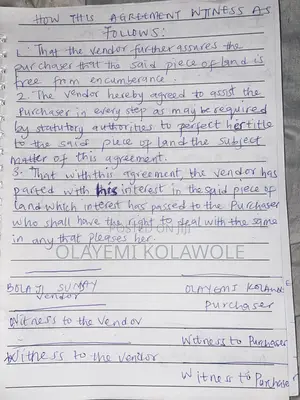 HOW THIS AGREEMENT WITNESS AS
FOLLOWS:
1. That the vendor further assures the
purchaser that the said piece of land is
free from encumberance.
2. The vendor hereby agreed to assist the
Purchaser in every step as may be required
by statutory authorities to perfect her title
to the said piece of land the subject
matter of this agreement.
3. That with this agreement, the vendor has
parted with his interest in the said piece of
land which interest has passed to the Purchaser
who shall have the right to deal with the same
in any that pleases her.
POSTED ON Jiji
OLAYEMI KOLAWOLE
BOLAJI SUNDAY OLAYEMI KOLAWOLE
Vendor Purchaser
Witness to the Vendor
Witness to Purchaser
Witness to the Vendor
Witness to Purchaser